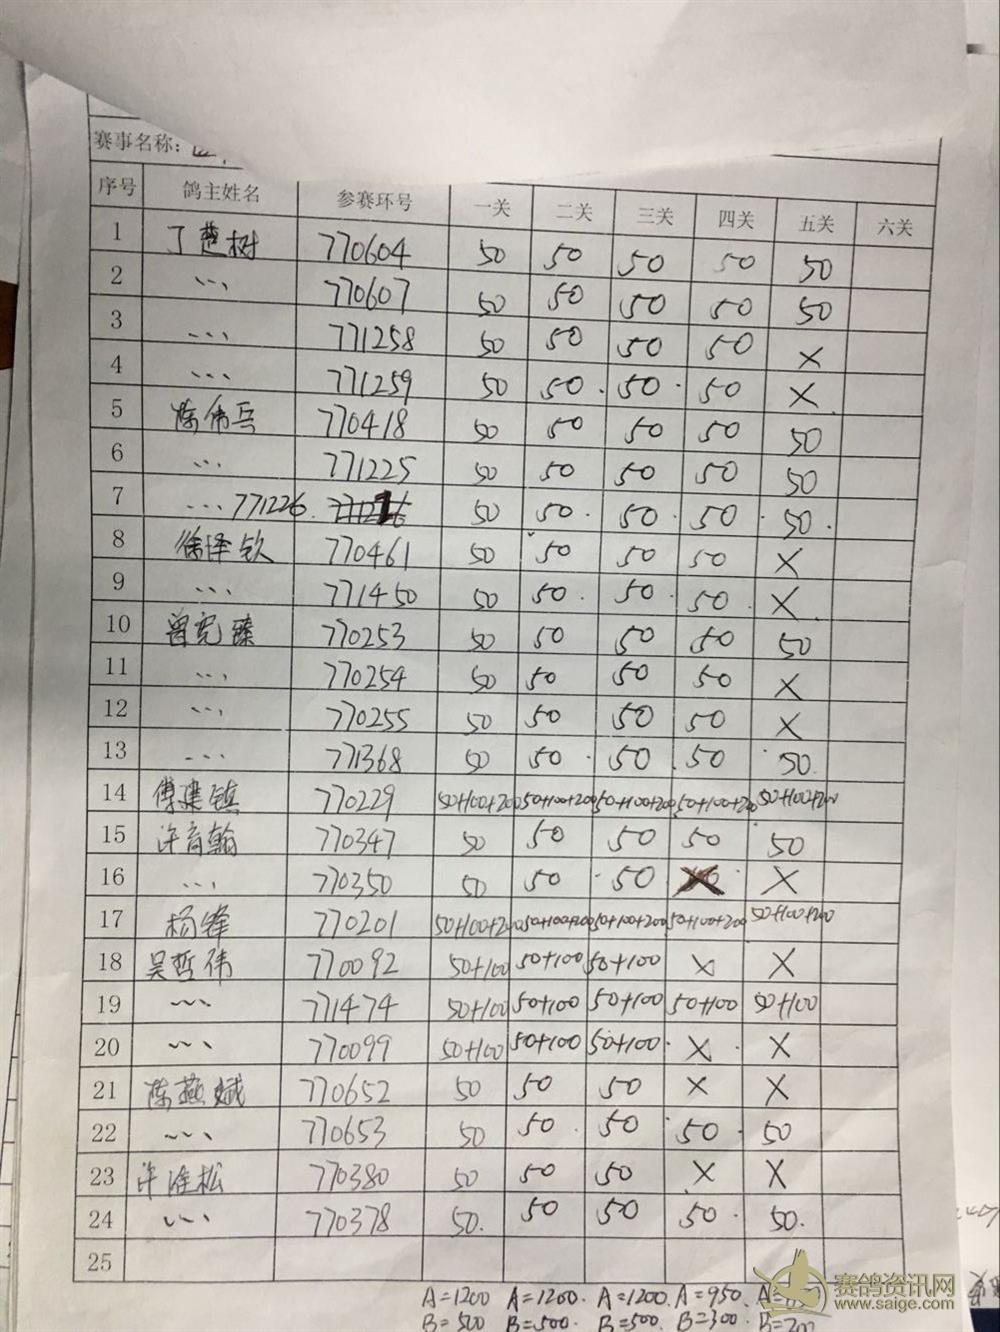 赛事名称:
序号 鸽主姓名 参赛环号 一关 二关 三关 四关 五关 六关
1 丁楚树 770604 50 50 50 50 50
2 〃 770607 50 50 50 50 50
3 〃 771258 50 50 50 50 X
4 〃 771259 50 50 50 50 X
5 陈伟兵 770418 50 50 50 50 50
6 〃 771225 50 50 50 50 50
7 〃 771226 50 50 50 50 50
8 徐泽钦 770461 50 50 50 50 X
9 〃 771450 50 50 50 50 X
10 曾宪臻 770253 50 50 50 50 50
11 〃 770254 50 50 50 50 X
12 〃 770255 50 50 50 50 X
13 〃 771368 50 50 50 50 50
14 傅建镇 770229 50+100+200 50+100+200 50+100+200 50+100+200 50+100+200
15 许育翰 770347 50 50 50 50 50
16 〃 770350 50 50 50 X X
17 杨锋 770201 50+100+200 50+100+200 50+100+200 50+100+200 50+100+200
18 吴哲伟 770092 50+100 50+100 50+100 X X
19 〃 771474 50+100 50+100 50+100 50+100 50+100
20 〃 770099 50+100 50+100 50+100 X X
21 陈燕斌 770652 50 50 50 X X
22 〃 770653 50 50 50 50 50
23 许 松 770380 50 50 50 X X
24 〃 770378 50 50 50 50 50
25
A=1200 A=1200 A=1200 A=950 A=
B=500 B=500 B=500 B=300 B=200
赛鸽资讯网
www.saige.com